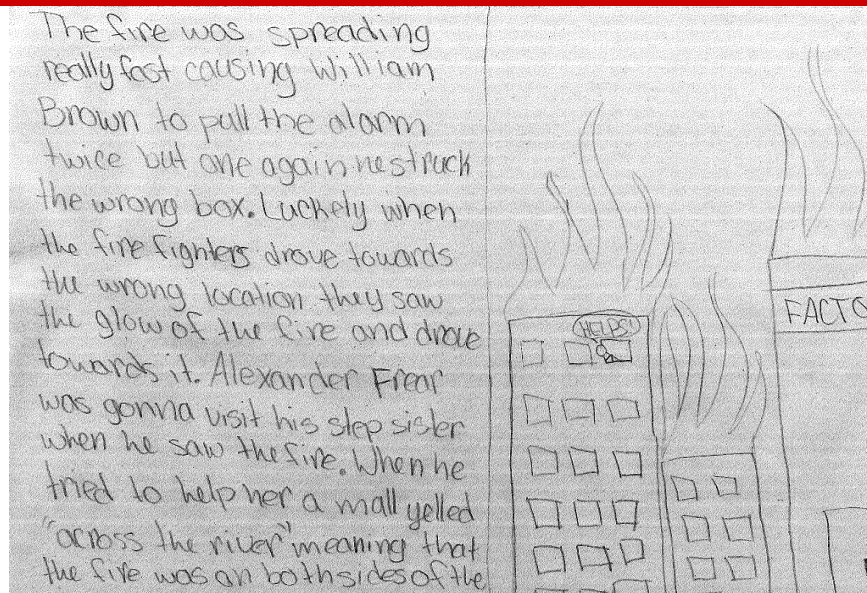 The fire was spreading
really fast causing William
Brown to pull the alarm
twice but one again he struck
the wrong box. Luckely when
the fire fighters drove towards
the wrong location they saw
the glow of the fire and drove
towards it. Alexander Frear
was gonna visit his step sister
when he saw the fire. When he
tried to help her a mall yelled
"across the river" meaning that
the fire was on both sides of the
HELPS!
FACTO